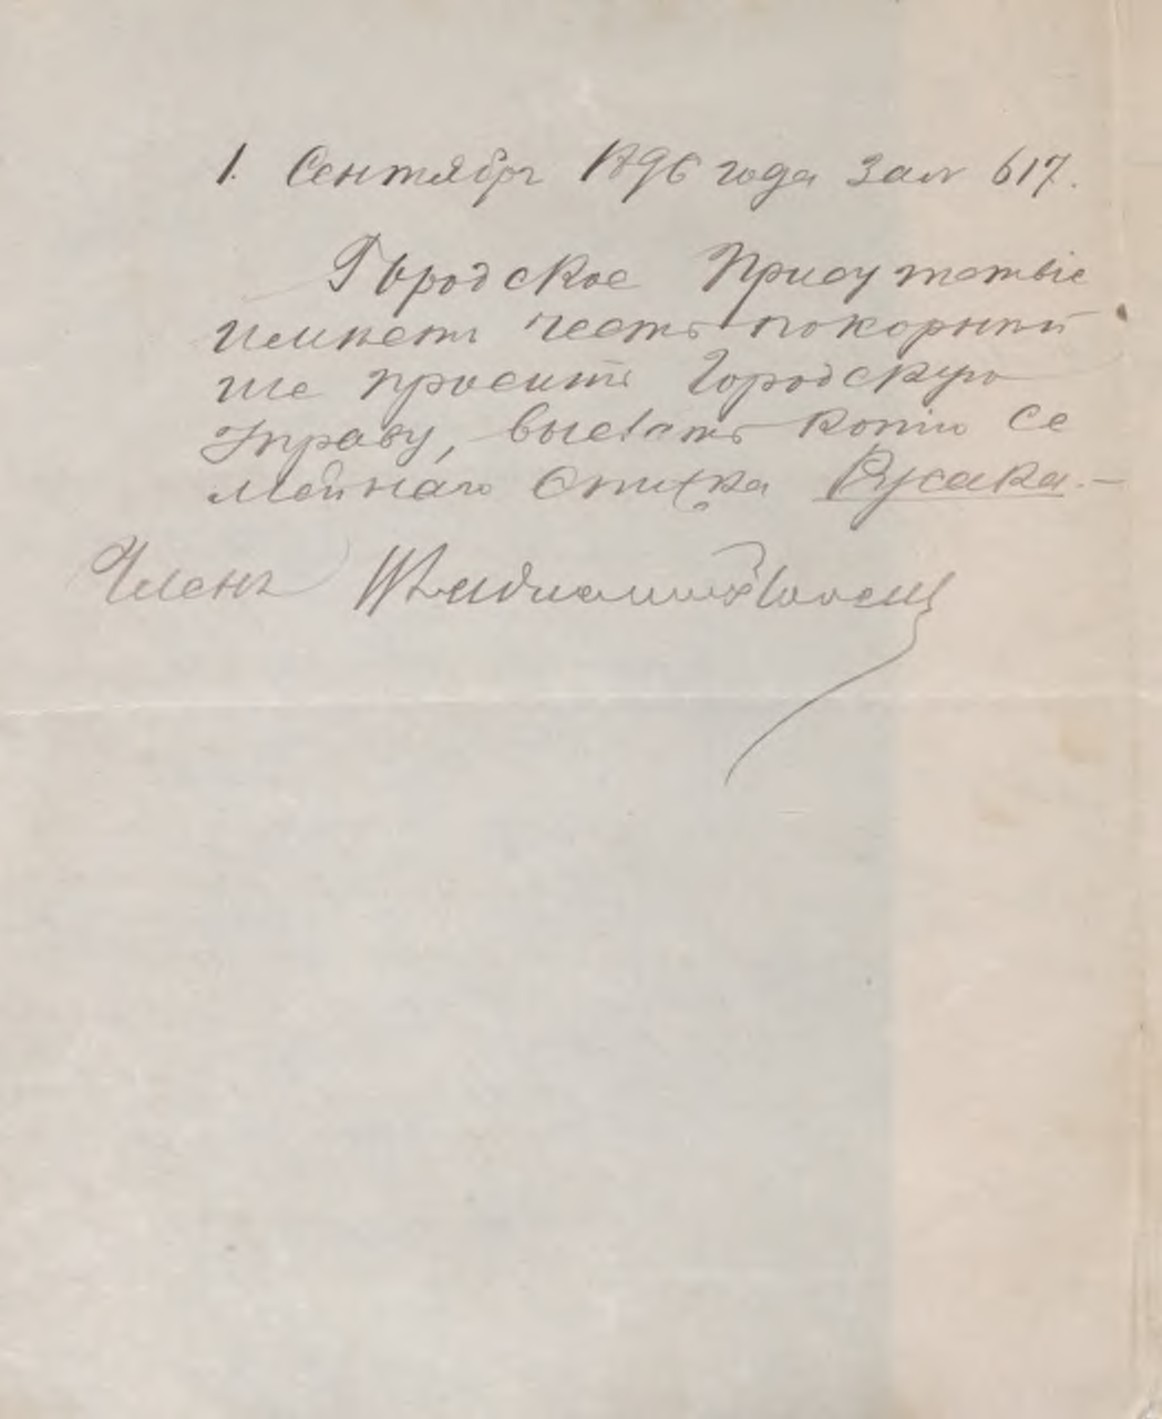 1. Сентября 1896 года за № 617.
Городское Присутствіе
имѣетъ честь покорнѣй
ше проситъ Городскую
Управу, выслать копію Се
мейнаго Списка Русака.—
Членъ